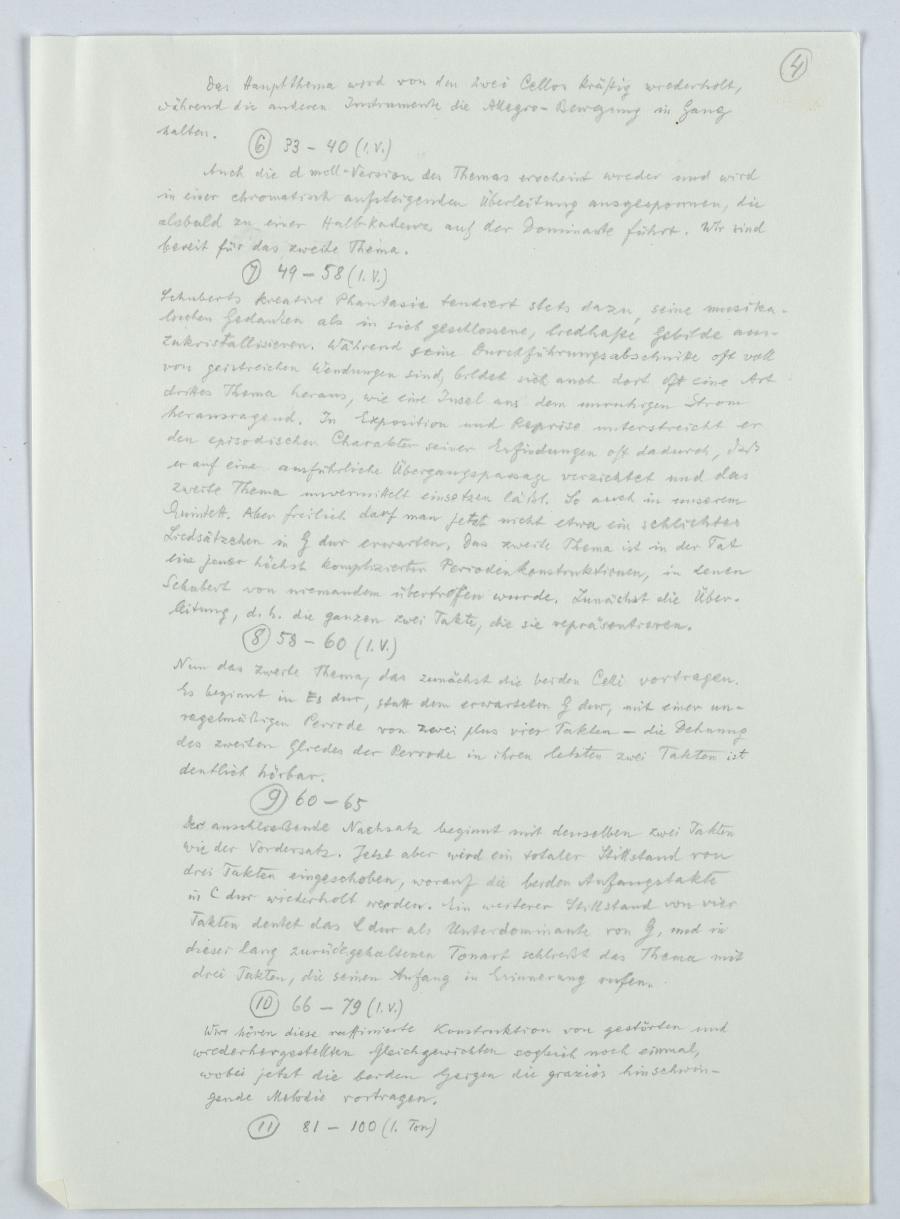 4
Das Hauptthema wird von den zwei Cellos kräftig wiederholt,
während die anderen Instrumente die Allegro-Bewegung in Gang
halten.
6 33 – 40 (I. V.)
Auch die d moll-Version des Themas erscheint wieder und wird
in einer chromatisch aufsteigenden Überleitung ausgesponnen, die
alsbald zu einer Halb-Kadenz auf der Dominante führt. Wir sind
bereit für das zweite Thema.
7 49 – 58 (I. V.)
Schuberts kreative Phantasie tendiert stets dazu, seine musika-
lischen Gedanken als in sich geschlossene, liedhafte Gebilde aus-
zukristallisieren. Während seine Durchführungsabschnitte oft voll
von geistreichen Wendungen sind, bildet sich auch dort oft eine Art
drittes Thema heraus, wie eine Insel aus dem unruhigen Strom
herausragend. In Exposition und Reprise unterstreicht er
den episodischen Charakter seiner Erfindungen oft dadurch, daß
er auf eine ausführliche Übergangspassage verzichtet und das
zweite Thema unvermittelt einsetzen läßt. So auch in unserem
Quintett. Aber freilich darf man jetzt nicht etwa ein schlichtes
Liedsätzchen in G dur erwarten. Das zweite Thema ist in der Tat
eine jener höchst komplizierten Periodenkonstruktionen, in denen
Schubert von niemandem übertroffen wurde. Zunächst die Über-
leitung, d. h. die ganzen zwei Takte, die sie repräsentieren.
8 58 – 60 (I. V.)
Nun das zweite Thema, das zunächst die beiden Celli vortragen.
Es beginnt in Es dur, statt dem erwarteten G dur, mit einer un-
regelmäßigen Periode von zwei plus vier Takten – die Dehnung
des zweiten Gliedes der Periode in ihren letzten zwei Takten ist
deutlich hörbar.
9 60 – 65
Der anschließende Nachsatz beginnt mit denselben zwei Takten
wie der Vordersatz. Jetzt aber wird ein totaler Stillstand von
drei Takten eingeschoben, worauf die beiden Anfangstakte
in C dur wiederholt werden. Ein weiterer Stillstand von vier
Takten deutet das C dur als Unterdominante von G, und in
dieser lang zurückgehaltenen Tonart schließt das Thema mit
drei Takten, die seinen Anfang in Erinnerung rufen.
10 66 – 79 (I. V.)
Wir hören diese raffinierte Konstruktion von gestörten und
wiederhergestellten Gleichgewichten sogleich noch einmal,
wobei jetzt die beiden Geigen die graziös hinschwin-
gende Melodie vortragen.
11 81 – 100 (1. Ton)